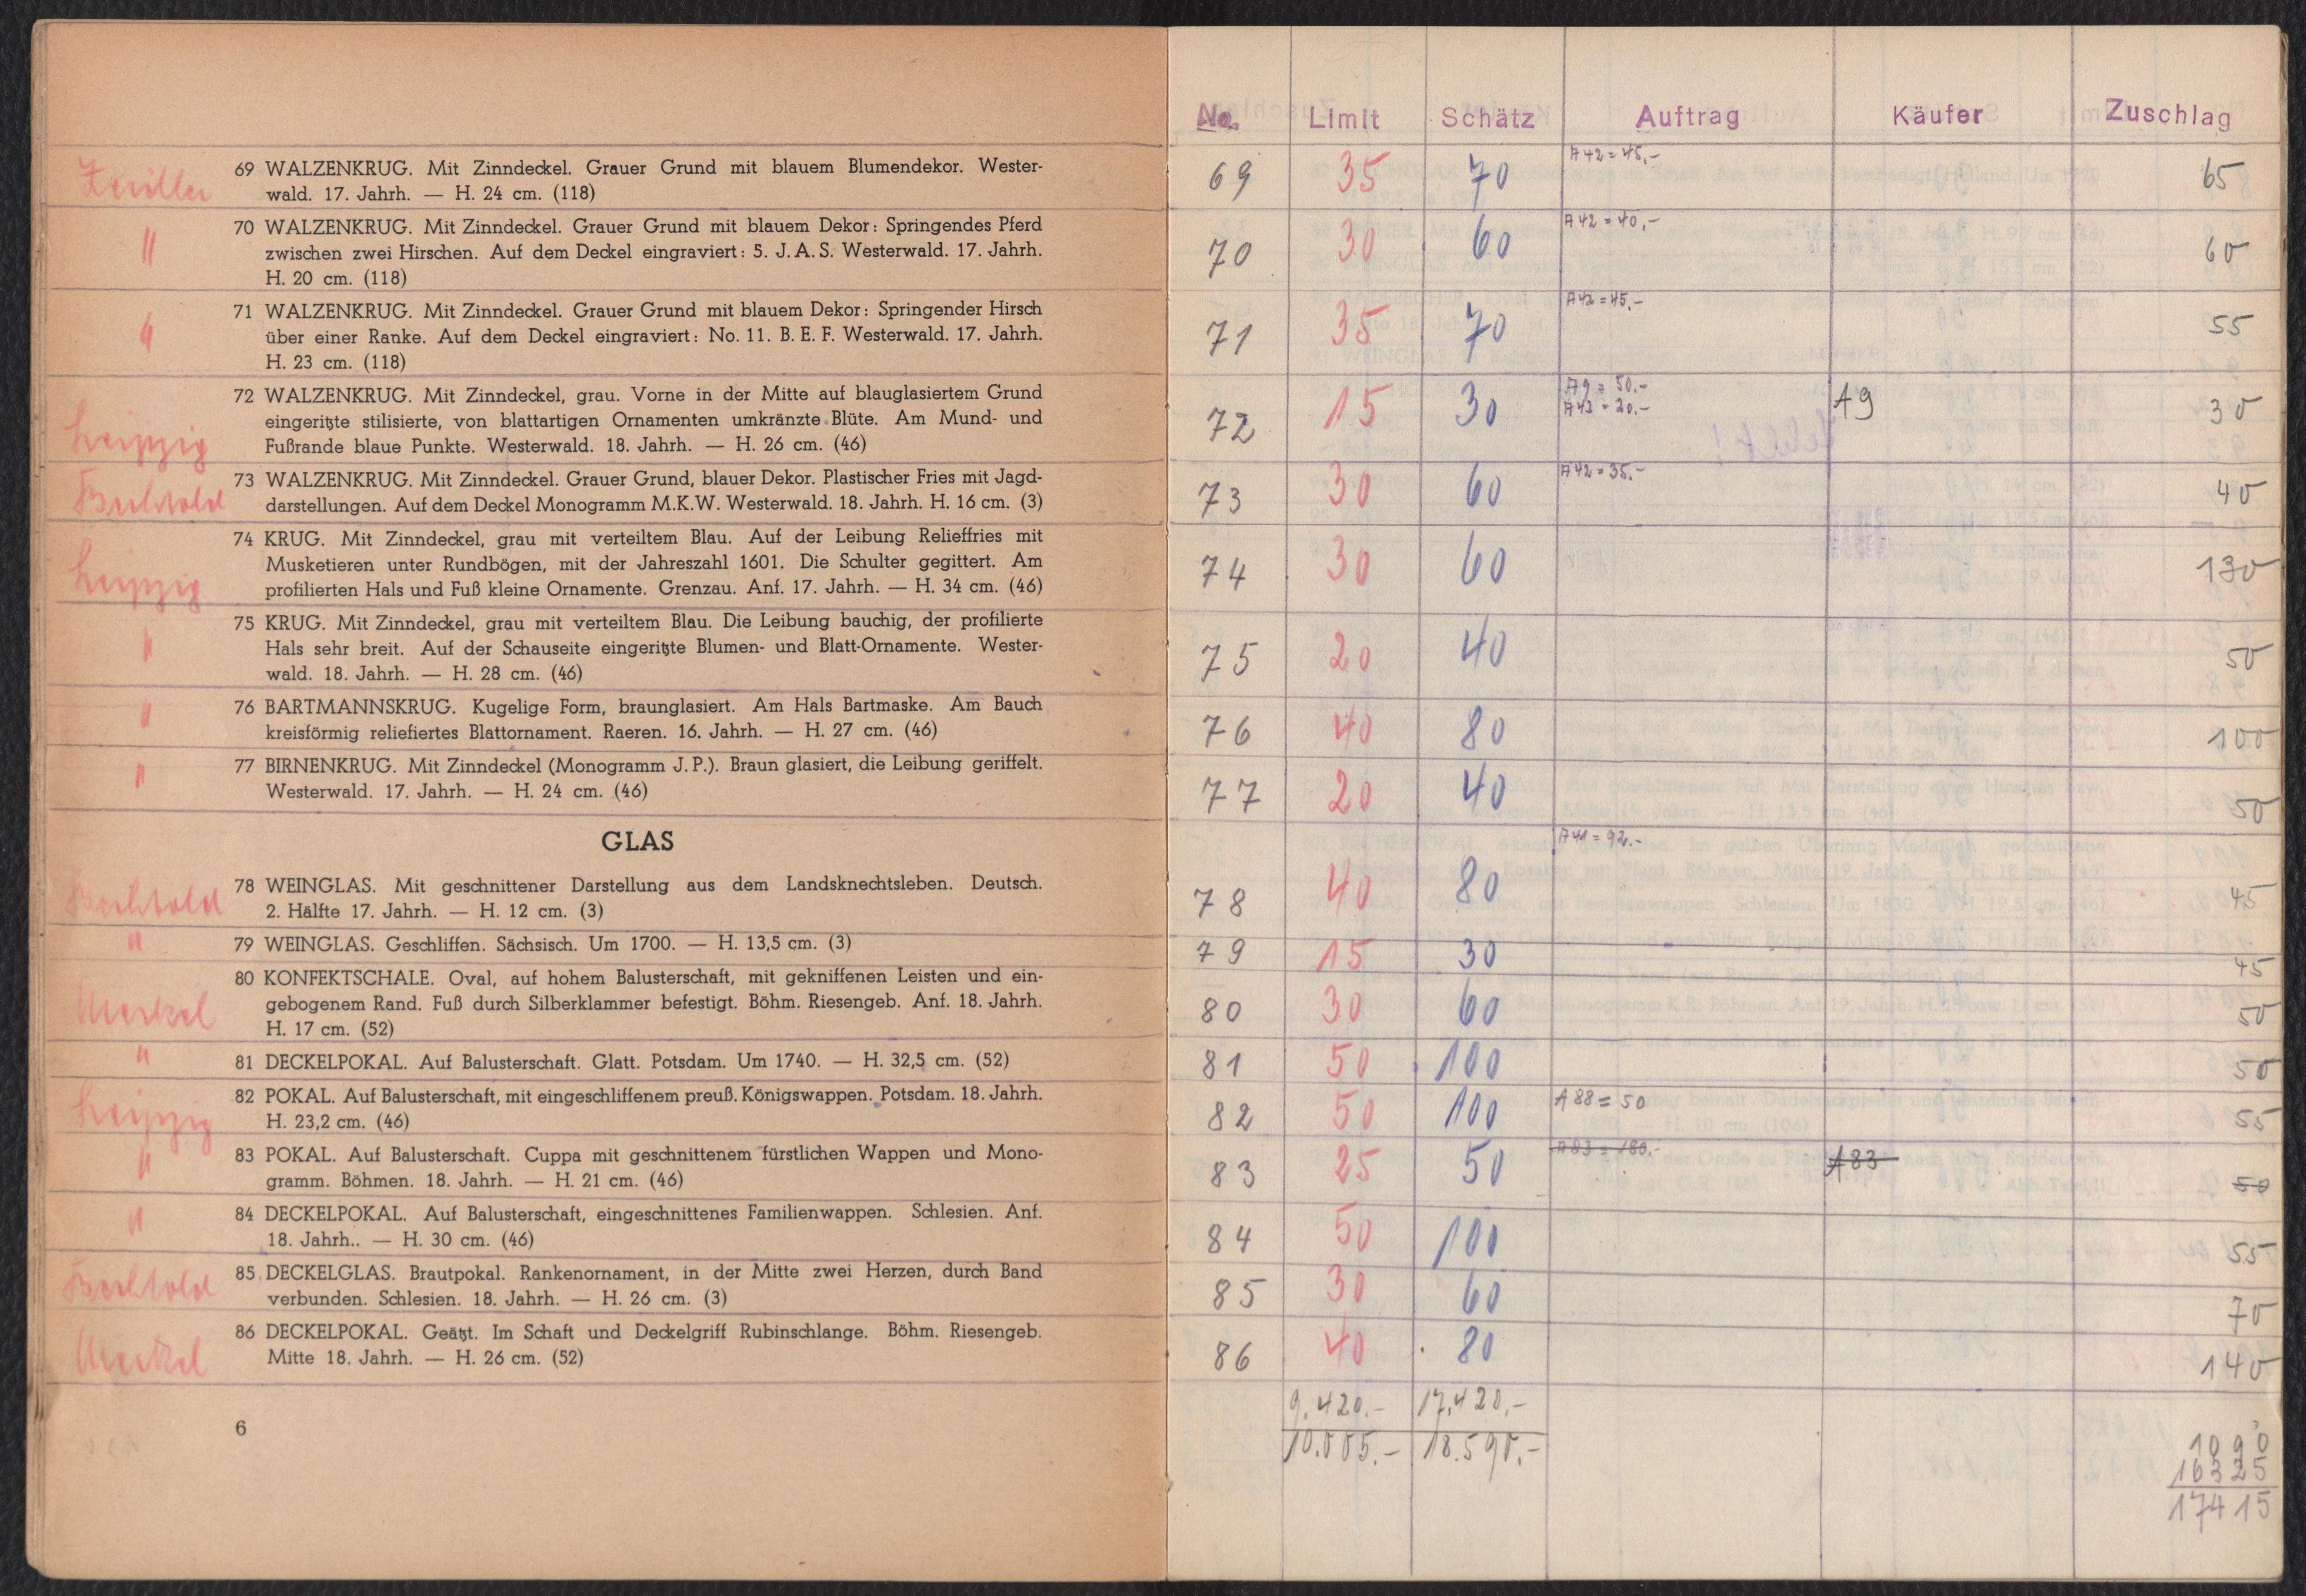 69 WALZENKRUG. Mit Zinndeckel. Grauer Grund mit blauem Blumendekor. Wester-
wald. 17. Jahrh. — H. 24 cm. (118)
"
70 WALZENKRUG. Mit Zinndeckel. Grauer Grund mit blauem Dekor: Springendes Pferd
zwischen zwei Hirschen. Auf dem Deckel eingraviert: 5. J. A. S. Westerwald. 17. Jahrh.
H. 20 cm. (118)
"
71 WALZENKRUG. Mit Zinndeckel. Grauer Grund mit blauem Dekor: Springender Hirsch
über einer Ranke. Auf dem Deckel eingraviert: No. 11. B. E. F. Westerwald. 17. Jahrh.
H. 23 cm. (118)
Leipzig
72 WALZENKRUG. Mit Zinndeckel, grau. Vorne in der Mitte auf blauglasiertem Grund
eingeritzte stilisierte, von blattartigen Ornamenten umkränzte Blüte. Am Mund- und
Fußrande blaue Punkte. Westerwald. 18. Jahrh. — H. 26 cm. (46)
Bechtold
73 WALZENKRUG. Mit Zinndeckel. Grauer Grund, blauer Dekor. Plastischer Fries mit Jagd-
darstellungen. Auf dem Deckel Monogramm M.K.W. Westerwald. 18. Jahrh. H. 16 cm. (3)
Leipzig
74 KRUG. Mit Zinndeckel, grau mit verteiltem Blau. Auf der Leibung Relieffries mit
Musketieren unter Rundbögen, mit der Jahreszahl 1601. Die Schulter gegittert. Am
profilierten Hals und Fuß kleine Ornamente. Grenzau. Anf. 17. Jahrh. — H. 34 cm. (46)
"
75 KRUG. Mit Zinndeckel, grau mit verteiltem Blau. Die Leibung bauchig, der profilierte
Hals sehr breit. Auf der Schauseite eingeritzte Blumen- und Blatt-Ornamente. Wester-
wald. 18. Jahrh. — H. 28 cm. (46)
"
76 BARTMANNSKRUG. Kugelige Form, braunglasiert. Am Hals Bartmaske. Am Bauch
kreisförmig reliefiertes Blattornament. Raeren. 16. Jahrh. — H. 27 cm. (46)
"
77 BIRNENKRUG. Mit Zinndeckel (Monogramm J. P.). Braun glasiert, die Leibung geriffelt.
Westerwald. 17. Jahrh. — H. 24 cm. (46)
GLAS
Bechtold
78 WEINGLAS. Mit geschnittener Darstellung aus dem Landsknechtsleben. Deutsch.
2. Hälfte 17. Jahrh. — H. 12 cm. (3)
"
79 WEINGLAS. Geschliffen. Sächsisch. Um 1700. — H. 13,5 cm. (3)
Merkel
80 KONFEKTSCHALE. Oval, auf hohem Balusterschaft, mit gekniffenen Leisten und ein-
gebogenem Rand. Fuß durch Silberklammer befestigt. Böhm. Riesengeb. Anf. 18. Jahrh.
H. 17 cm. (52)
"
81 DECKELPOKAL. Auf Balusterschaft. Glatt. Potsdam. Um 1740. — H. 32,5 cm. (52)
Leipzig
82 POKAL. Auf Balusterschaft, mit eingeschliffenem preuß. Königswappen. Potsdam. 18. Jahrh.
H. 23,2 cm. (46)
"
83 POKAL. Auf Balusterschaft. Cuppa mit geschnittenem fürstlichen Wappen und Mono-
gramm. Böhmen. 18. Jahrh. — H. 21 cm. (46)
"
84 DECKELPOKAL. Auf Balusterschaft, eingeschnittenes Familienwappen. Schlesien. Anf.
18. Jahrh.. — H. 30 cm. (46)
Bechtold
85 DECKELGLAS. Brautpokal. Rankenornament, in der Mitte zwei Herzen, durch Band
verbunden. Schlesien. 18. Jahrh. — H. 26 cm. (3)
Merkel
86 DECKELPOKAL. Geätzt. Im Schaft und Deckelgriff Rubinschlange. Böhm. Riesengeb.
Mitte 18. Jahrh. — H. 26 cm. (52)
6
No. Limit Schätz Auftrag Käufer Zuschlag
69 35 70 A42 = 45,- 65
70 30 60 A42 = 40,- 60
71 35 70 A42 = 45,- 55
72 15 30 A9 = 50.- A9 30
A42 = 20.-
73 30 60 A42 = 35.- 40
74 30 60 130
75 20 40 50
76 40 80 100
77 20 40 50
78 40 80 A41 = 92.- 45
79 15 30 45
80 30 60 50
81 50 100 50
82 50 100 A88 = 50 55
83 25 50 A83 = 180,- A83 50
84 50 100 55
85 30 60 70
86 40 80 140
9.420.- 17.420,-
10.005.- 18.590.-
1090
16325
17415